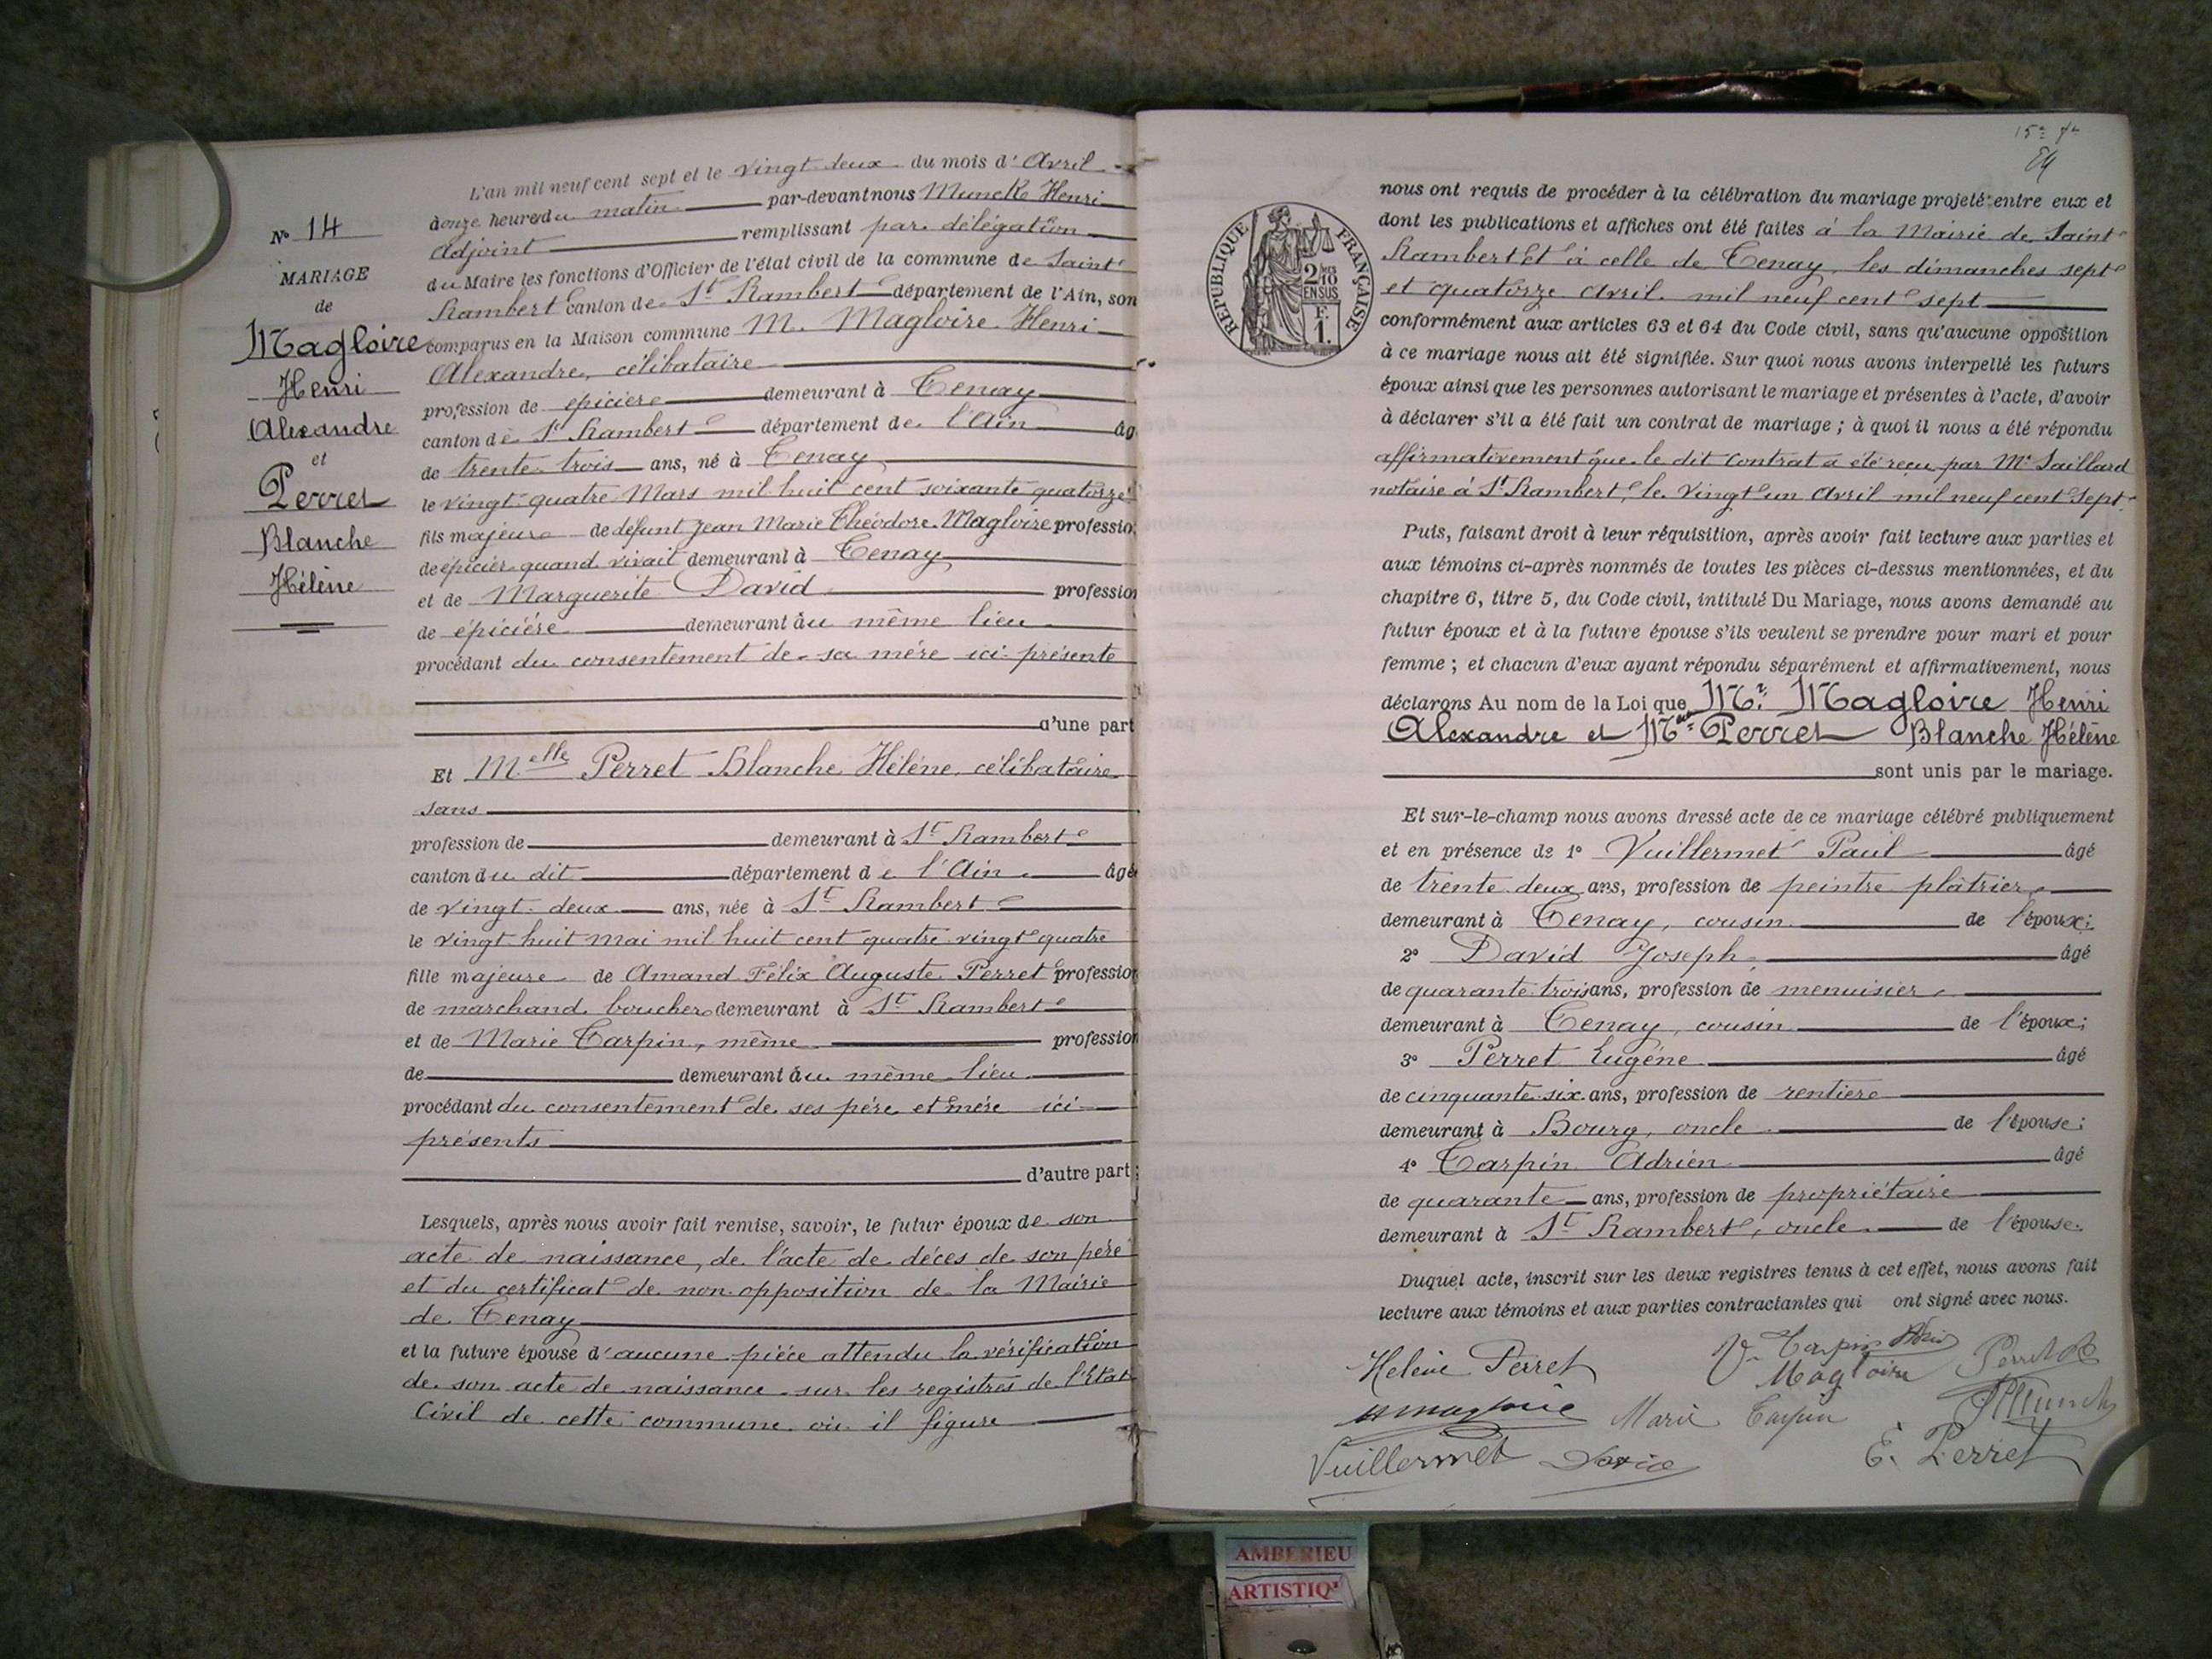 L'an mil neuf cent sept et le vingt deux du mois d'Avril
à onze heures du matin par-devant nous Munck Henri
Adjoint remplissant par délégation
du Maire les fonctions d'Officier de l'état civil de la commune de Saint
Rambert canton de St Rambert département de l'Ain, son
comparus en la Maison commune M. Magloire Henri
Alexandre, célibataire
profession de épicier demeurant à Tenay
canton de St Rambert département de l'Ain âg
de trente trois ans, né à Tenay
le vingt quatre Mars mil huit cent soixante quatorze
fils majeur de défunt Jean Marie Théodore Magloire professio
de épicier quand vivait demeurant à Tenay
et de Marguerite David profession
de épicière demeurant au même lieu
procédant du consentement de sa mère ici présente
d'une part
Et Melle Perret Blanche Hélène, célibataire
sans
profession de demeurant à St Rambert
canton du dit département de l'Ain âgé
de vingt deux ans, née à St Rambert
le vingt huit Mai mil huit cent quatre vingt quatre
fille majeure de Amand Félix Auguste Perret profession
de marchand boucher demeurant à St Rambert
et de Marie Tarpin, même profession
de demeurant au même lieu
procédant du consentement de ses père et mère ici
présents
d'autre part ;
Lesquels, après nous avoir fait remise, savoir, le futur époux de son
acte de naissance, de l'acte de décès de son père
et du certificat de non opposition de la Mairie
de Tenay
et la future épouse d'aucune pièce attendu la vérification
de son acte de naissance sur les registres de l'Etat
Civil de cette commune où il figure
No 14
MARIAGE
de
Magloire
Henri
Alexandre
et
Perret
Blanche
Hélène
89
RÉPUBLIQUE FRANÇAISE
2/10
EN SUS
F.
1.
nous ont requis de procéder à la célébration du mariage projeté entre eux et
dont les publications et affiches ont été faites à la Mairie de Saint
Rambert et à celle de Tenay, les dimanches sept
et quatorze Avril mil neuf cent sept
conformément aux articles 63 et 64 du Code civil, sans qu'aucune opposition
à ce mariage nous ait été signifiée. Sur quoi nous avons interpellé les futurs
époux ainsi que les personnes autorisant le mariage et présentes à l'acte, d'avoir
à déclarer s'il a été fait un contrat de mariage ; à quoi il nous a été répondu
affirmativement que le dit contrat a été reçu par Me Saillard
notaire à St Rambert, le vingt un Avril mil neuf cent sept.
Puis, faisant droit à leur réquisition, après avoir fait lecture aux parties et
aux témoins ci-après nommés de toutes les pièces ci-dessus mentionnées, et du
chapitre 6, titre 5, du Code civil, intitulé Du Mariage, nous avons demandé au
futur époux et à la future épouse s'ils veulent se prendre pour mari et pour
femme ; et chacun d'eux ayant répondu séparément et affirmativement, nous
déclarons Au nom de la Loi que Mr. Magloire Henri
Alexandre et Melle Perret Blanche Hélène
sont unis par le mariage.
Et sur-le-champ nous avons dressé acte de ce mariage célébré publiquement
et en présence de 1° Vuillermet Paul âgé
de trente deux ans, profession de peintre plâtrier
demeurant à Tenay, cousin de l'époux ;
2° David Joseph âgé
de quarante trois ans, profession de menuisier
demeurant à Tenay, cousin de l'époux ;
3° Perret Eugène âgé
de cinquante six ans, profession de rentier
demeurant à Bourg, oncle de l'épouse ;
4° Tarpin Adrien âgé
de quarante ans, profession de propriétaire
demeurant à St Rambert, oncle de l'épouse.
Duquel acte, inscrit sur les deux registres tenus à cet effet, nous avons fait
lecture aux témoins et aux parties contractantes qui ont signé avec nous.
Helène Perret Vve Magloire Tarpin Perret
Marie Tarpin HMunck
Vuillermet David E. Perret
AMBERIEU
ARTISTIQ